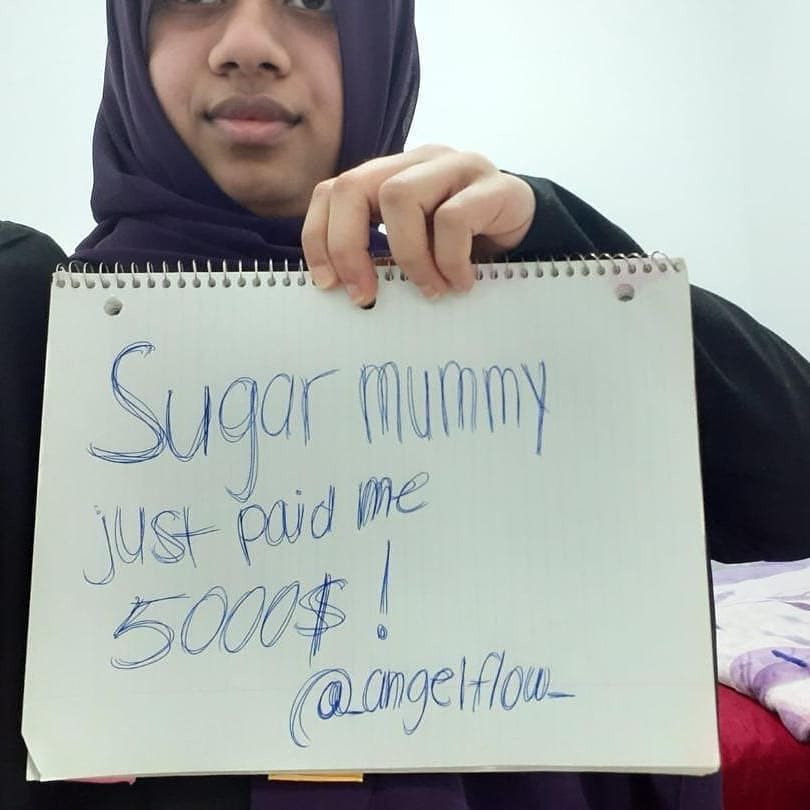 Sugar mummy
just paid me
5000$ !
@_angelflow_